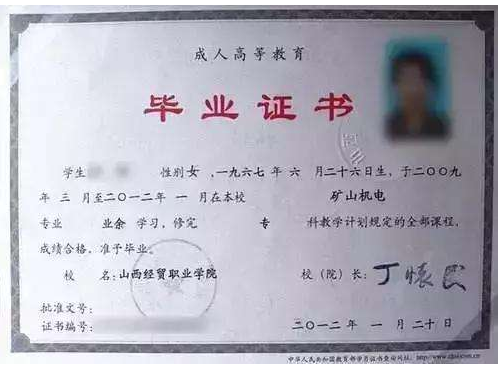 成人高等教育
毕业证书
学生 性别女,一九六七年六月二十六日生,于二〇〇九
年三月至二〇一二年一月在本校 矿山机电
专业 业余 学习,修完 专 科教学计划规定的全部课程,
成绩合格,准予毕业。
校 名:山西经贸职业学院 校(院)长:
批准文号:
证书编号: 二〇一二年一月二十日
中华人民共和国教育部学历证书查询网址:http://www.chsi.com.cn